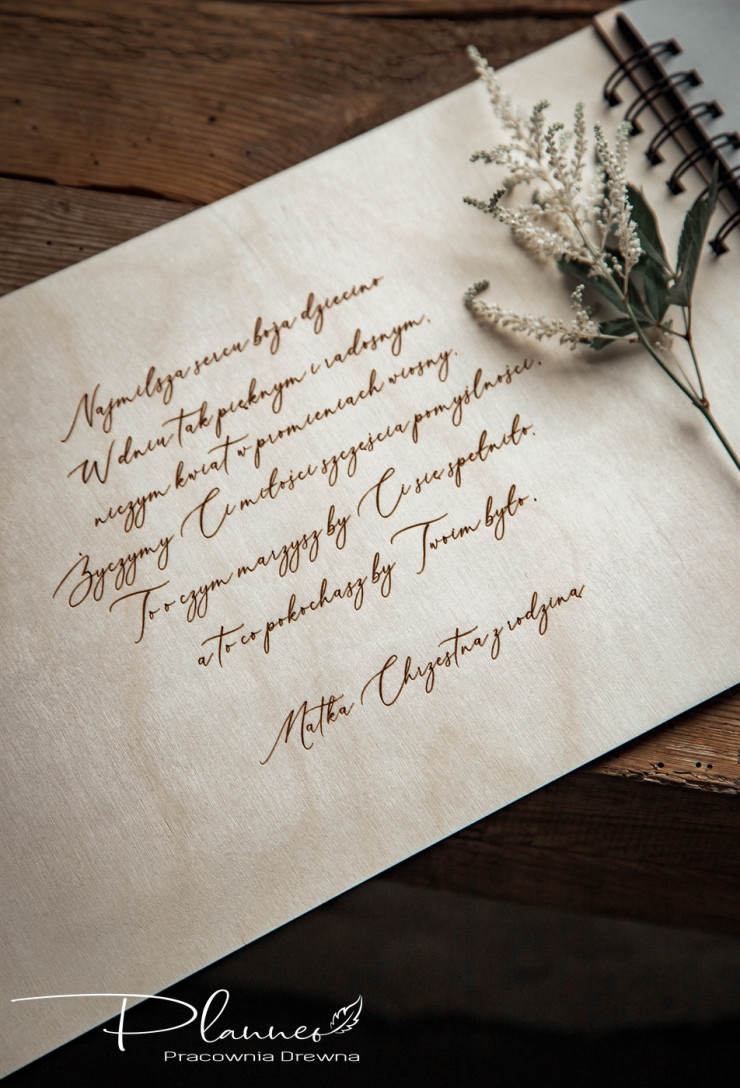 Najmilsza sercu boża dziecino
W dniu tak pięknym i radosnym,
niczym kwiat w promieniach wiosny,
Życzymy Ci miłości szczęścia pomyślności,
To o czym marzysz by Ci się spełniło,
a to co pokochasz by Twoim było.
Matka Chrzestna z rodziną
Planneo
Pracownia Drewna